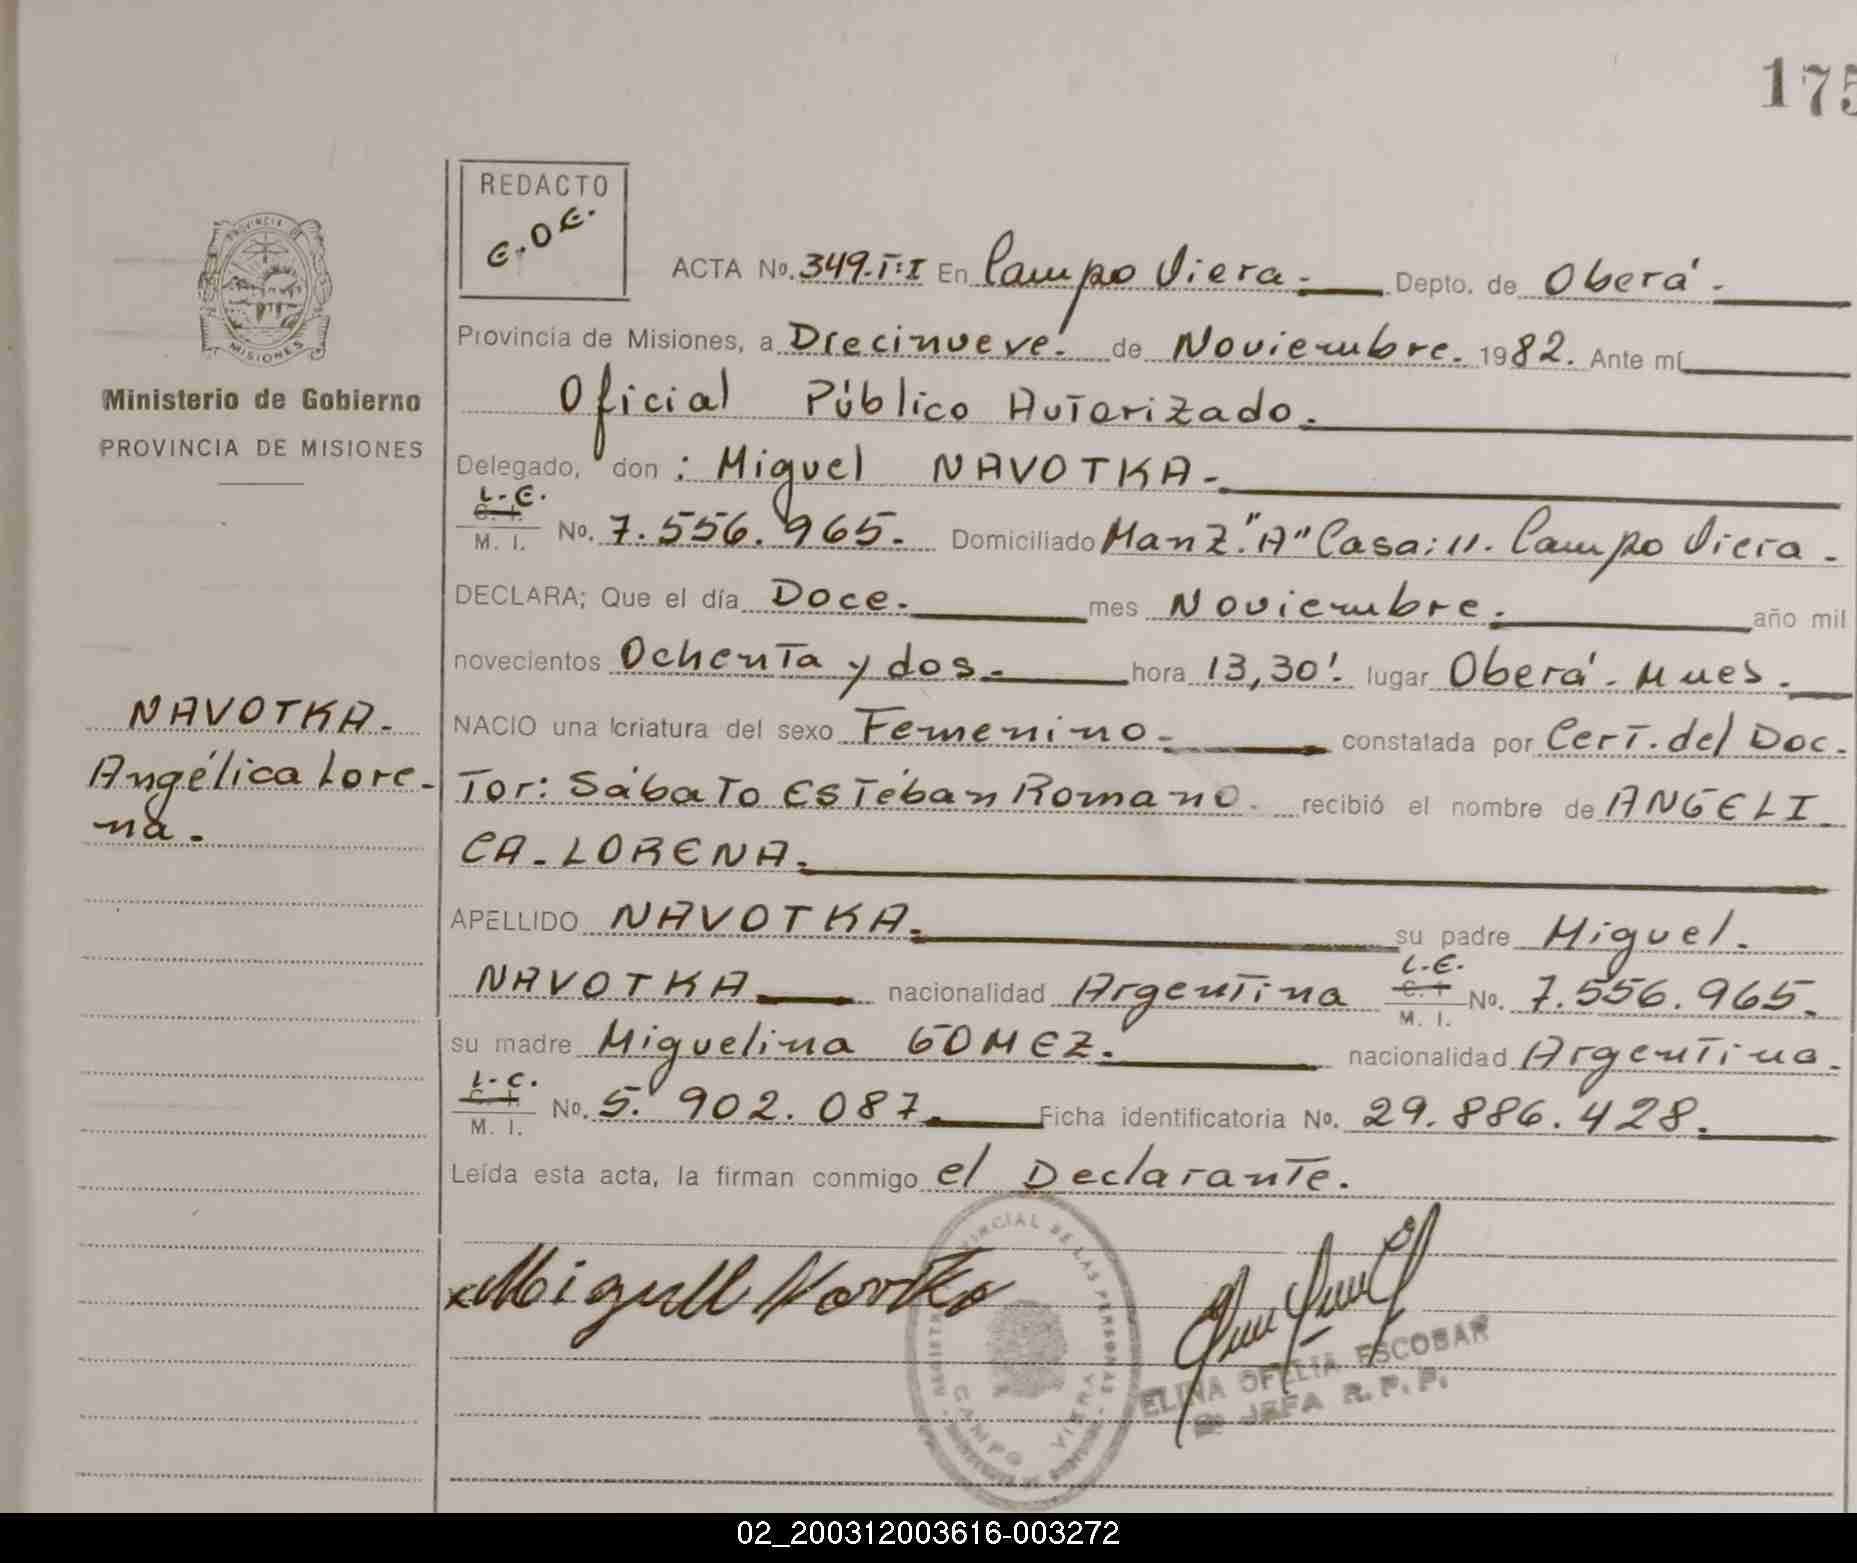 175
REDACTO
E.O.E.
PROVINCIA DE
MISIONES
Ministerio de Gobierno
PROVINCIA DE MISIONES
ACTA No. 349.T:I En Campo Viera.- Depto. de Oberá.-
Provincia de Misiones, a Diecinueve. de Noviembre. 1982. Ante mí
Oficial Público Autorizado.
Delegado, don : Miguel NAVOTKA.-
L.E.
C. I.
M. I. No. 7.556.965. Domiciliado Manz."A" Casa:11. Campo Viera.-
DECLARA; Que el día Doce. mes Noviembre. año mil
novecientos Ochenta y dos.- hora 13,30'. lugar Oberá. Mnes.-
NAVOTKA.-
Angélica Lore-
na.
NACIO una criatura del sexo Femenino.- constatada por Cert. del Doc.
tor: Sábato Estéban Romano. recibió el nombre de ANGELI
CA-LORENA.
APELLIDO NAVOTKA. su padre Miguel.
L.E.
NAVOTKA nacionalidad Argentina C. I. M. I. No. 7.556.965.
su madre Miguelina GOMEZ.- nacionalidad Argentina.-
L.C.
C. I.
M. I. No. 5.902.087. Ficha identificatoria No. 29.886.428.
Leída esta acta, la firman conmigo el Declarante.
Miguel
REGISTRO PROVINCIAL DE LAS PERSONAS
CAMPO VIERA
ELINA OFELIA ESCOBAR
JEFA R. P. P.
02_200312003616-003272